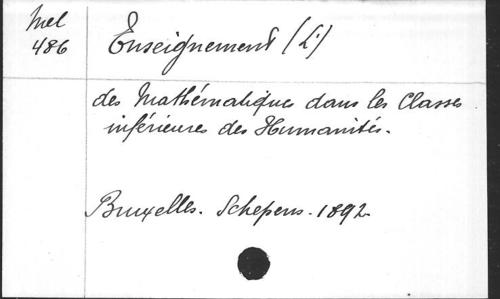 Mel
486
Enseignement (L')
des Mathématiques dans les Classes
inférieures des Humanités.
Bruxelles. Schepens. 1892.